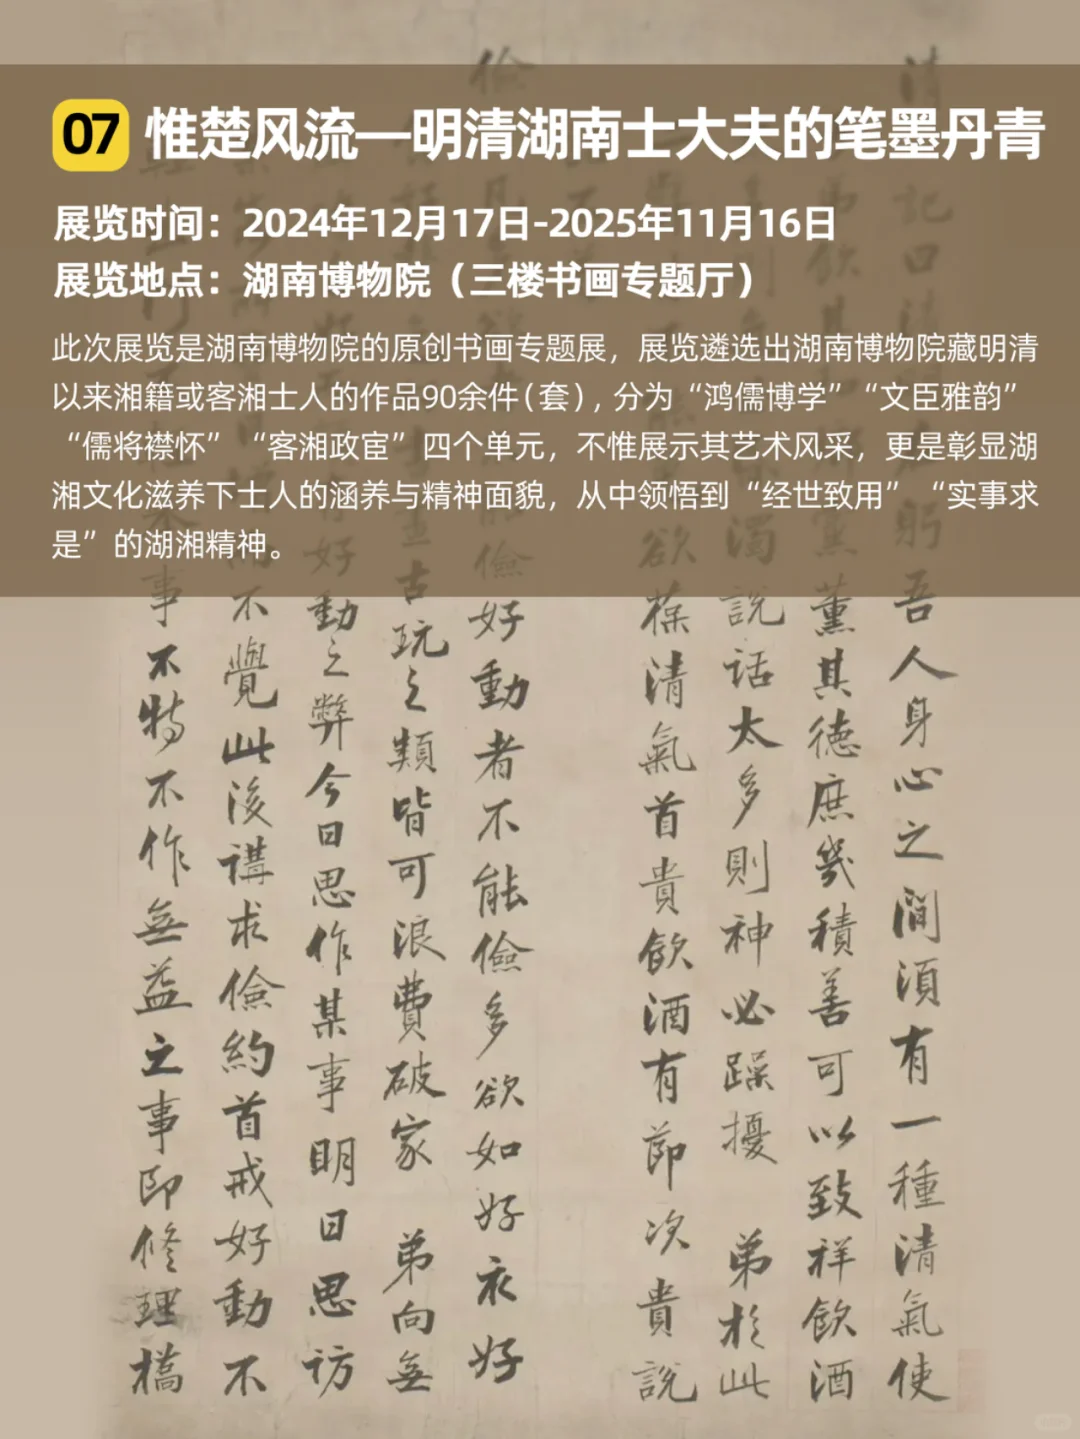 07 惟楚风流—明清湖南士大夫的笔墨丹青
展览时间：2024年12月17日-2025年11月16日
展览地点：湖南博物院（三楼书画专题厅）
此次展览是湖南博物院的原创书画专题展，展览遴选出湖南博物院藏明清
以来湘籍或客湘士人的作品90余件（套），分为“鸿儒博学”“文臣雅韵”
“儒将襟怀”“客湘政宦”四个单元，不惟展示其艺术风采，更是彰显湖
湘文化滋养下士人的涵养与精神面貌，从中领悟到“经世致用”“实事求
是”的湖湘精神。
清
記曰清躬吾人身心之間須有一種清氣使
弟飲其和黨薰其德庶幾積善可以致祥飲酒
濁說話太多則神必躁擾 弟於此
欲葆清氣首貴飲酒有節次貴說
儉
儉好動者不能儉多欲如好衣好
古玩之類皆可浪費破家 弟向無
好動之弊今日思作某事明日思訪
不覺此後講求儉約首戒好動不
事不特不作無益之事即修理橋